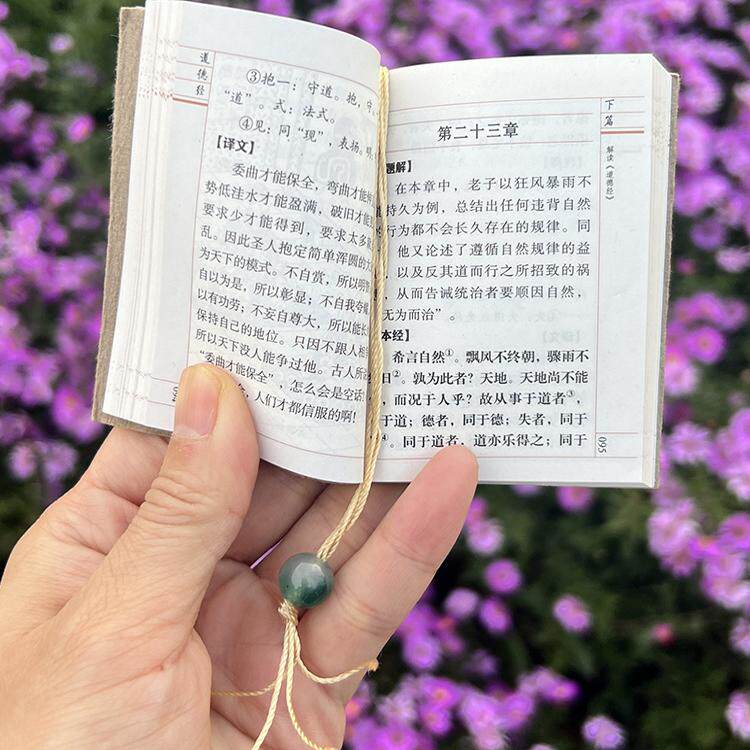 道德经
③抱一：守道。抱，守。
“道”。式：法式。
④见：同“现”，表扬。
【译文】
委曲才能保全，弯曲才能
势低洼水才能盈满，破旧才能
要求少才能得到，要求太多
乱。因此圣人抱定简单浑圆的
为天下的模式。不自赏，所以明
自以为是，所以彰显；不自我夸
以有功劳；不妄自尊大，所以能长
保持自己的地位。只因不跟人相
所以天下没人能争过他。古人所
“委曲才能保全”，怎么会是空话
，人们才都信服的啊！
094
下篇
解读《道德经》
第二十三章
题解】
在本章中，老子以狂风暴雨不
持久为例，总结出任何违背自然
行为都不会长久存在的规律。同
，他又论述了遵循自然规律的益
，以及反其道而行之所招致的祸
，从而告诫统治者要顺因自然，
无为而治”。
本经】
希言自然①。飘风不终朝，骤雨不
日②。孰为此者？天地。天地尚不能
，而况于人乎？故从事于道者③，
于道；德者，同于德；失者，同于
④。同于道者，道亦乐得之；同于
095